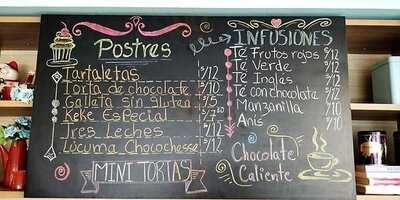 Postres
Tartaletas S/12
Torta de chocolate S/10
Galleta sin gluten S/5
Keke Especial S/7.50
Tres Leches S/12
Lúcuma Chocochessa S/12
MINI TORTAS
INFUSIONES
Té Frutos rojos S/12
Té Verde S/12
Té Ingles S/12
Té con chocolate S/12
Manzanilla S/10
Anís S/10
Chocolate
Caliente